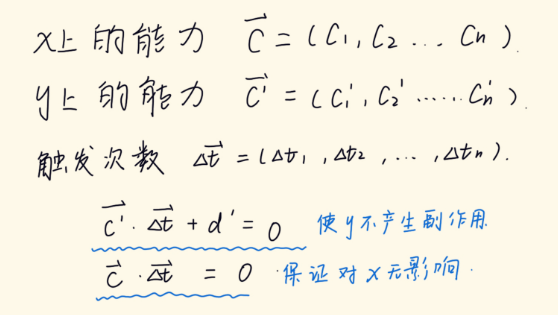 x上的能力 $\vec{C} = (C_1, C_2 \ldots C_n).$
y上的能力 $\vec{C'} = (C_1', C_2' \ldots\ldots C_n').$
触发次数 $\vec{\Delta t} = (\Delta t_1, \Delta t_2, \ldots, \Delta t_n).$
$\vec{C'} \cdot \vec{\Delta t} + d' = 0$ 使y不产生副作用
$\vec{C} \cdot \vec{\Delta t} = 0$ ·保证对x无影响.